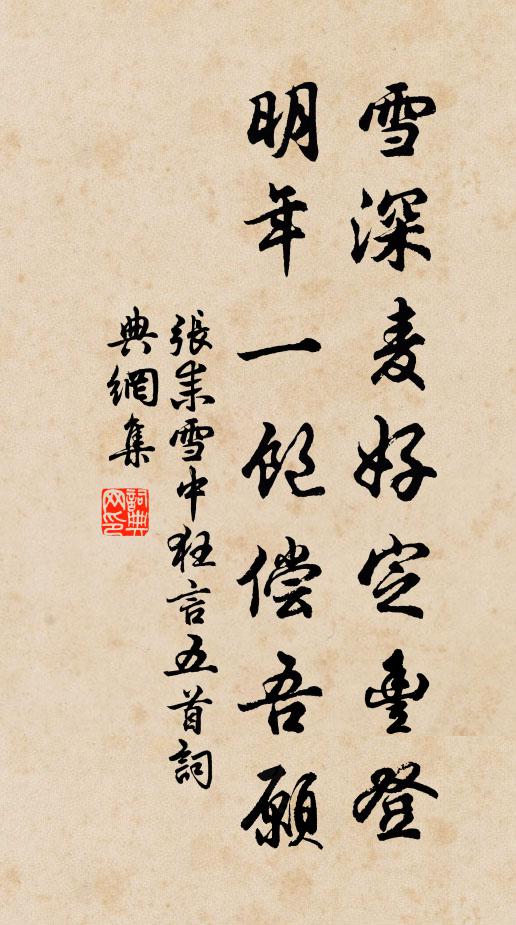 雪深麦好定豊登
明年一飽偿吾願
張耒雪中狂言五首詞
典網集
詞典網印